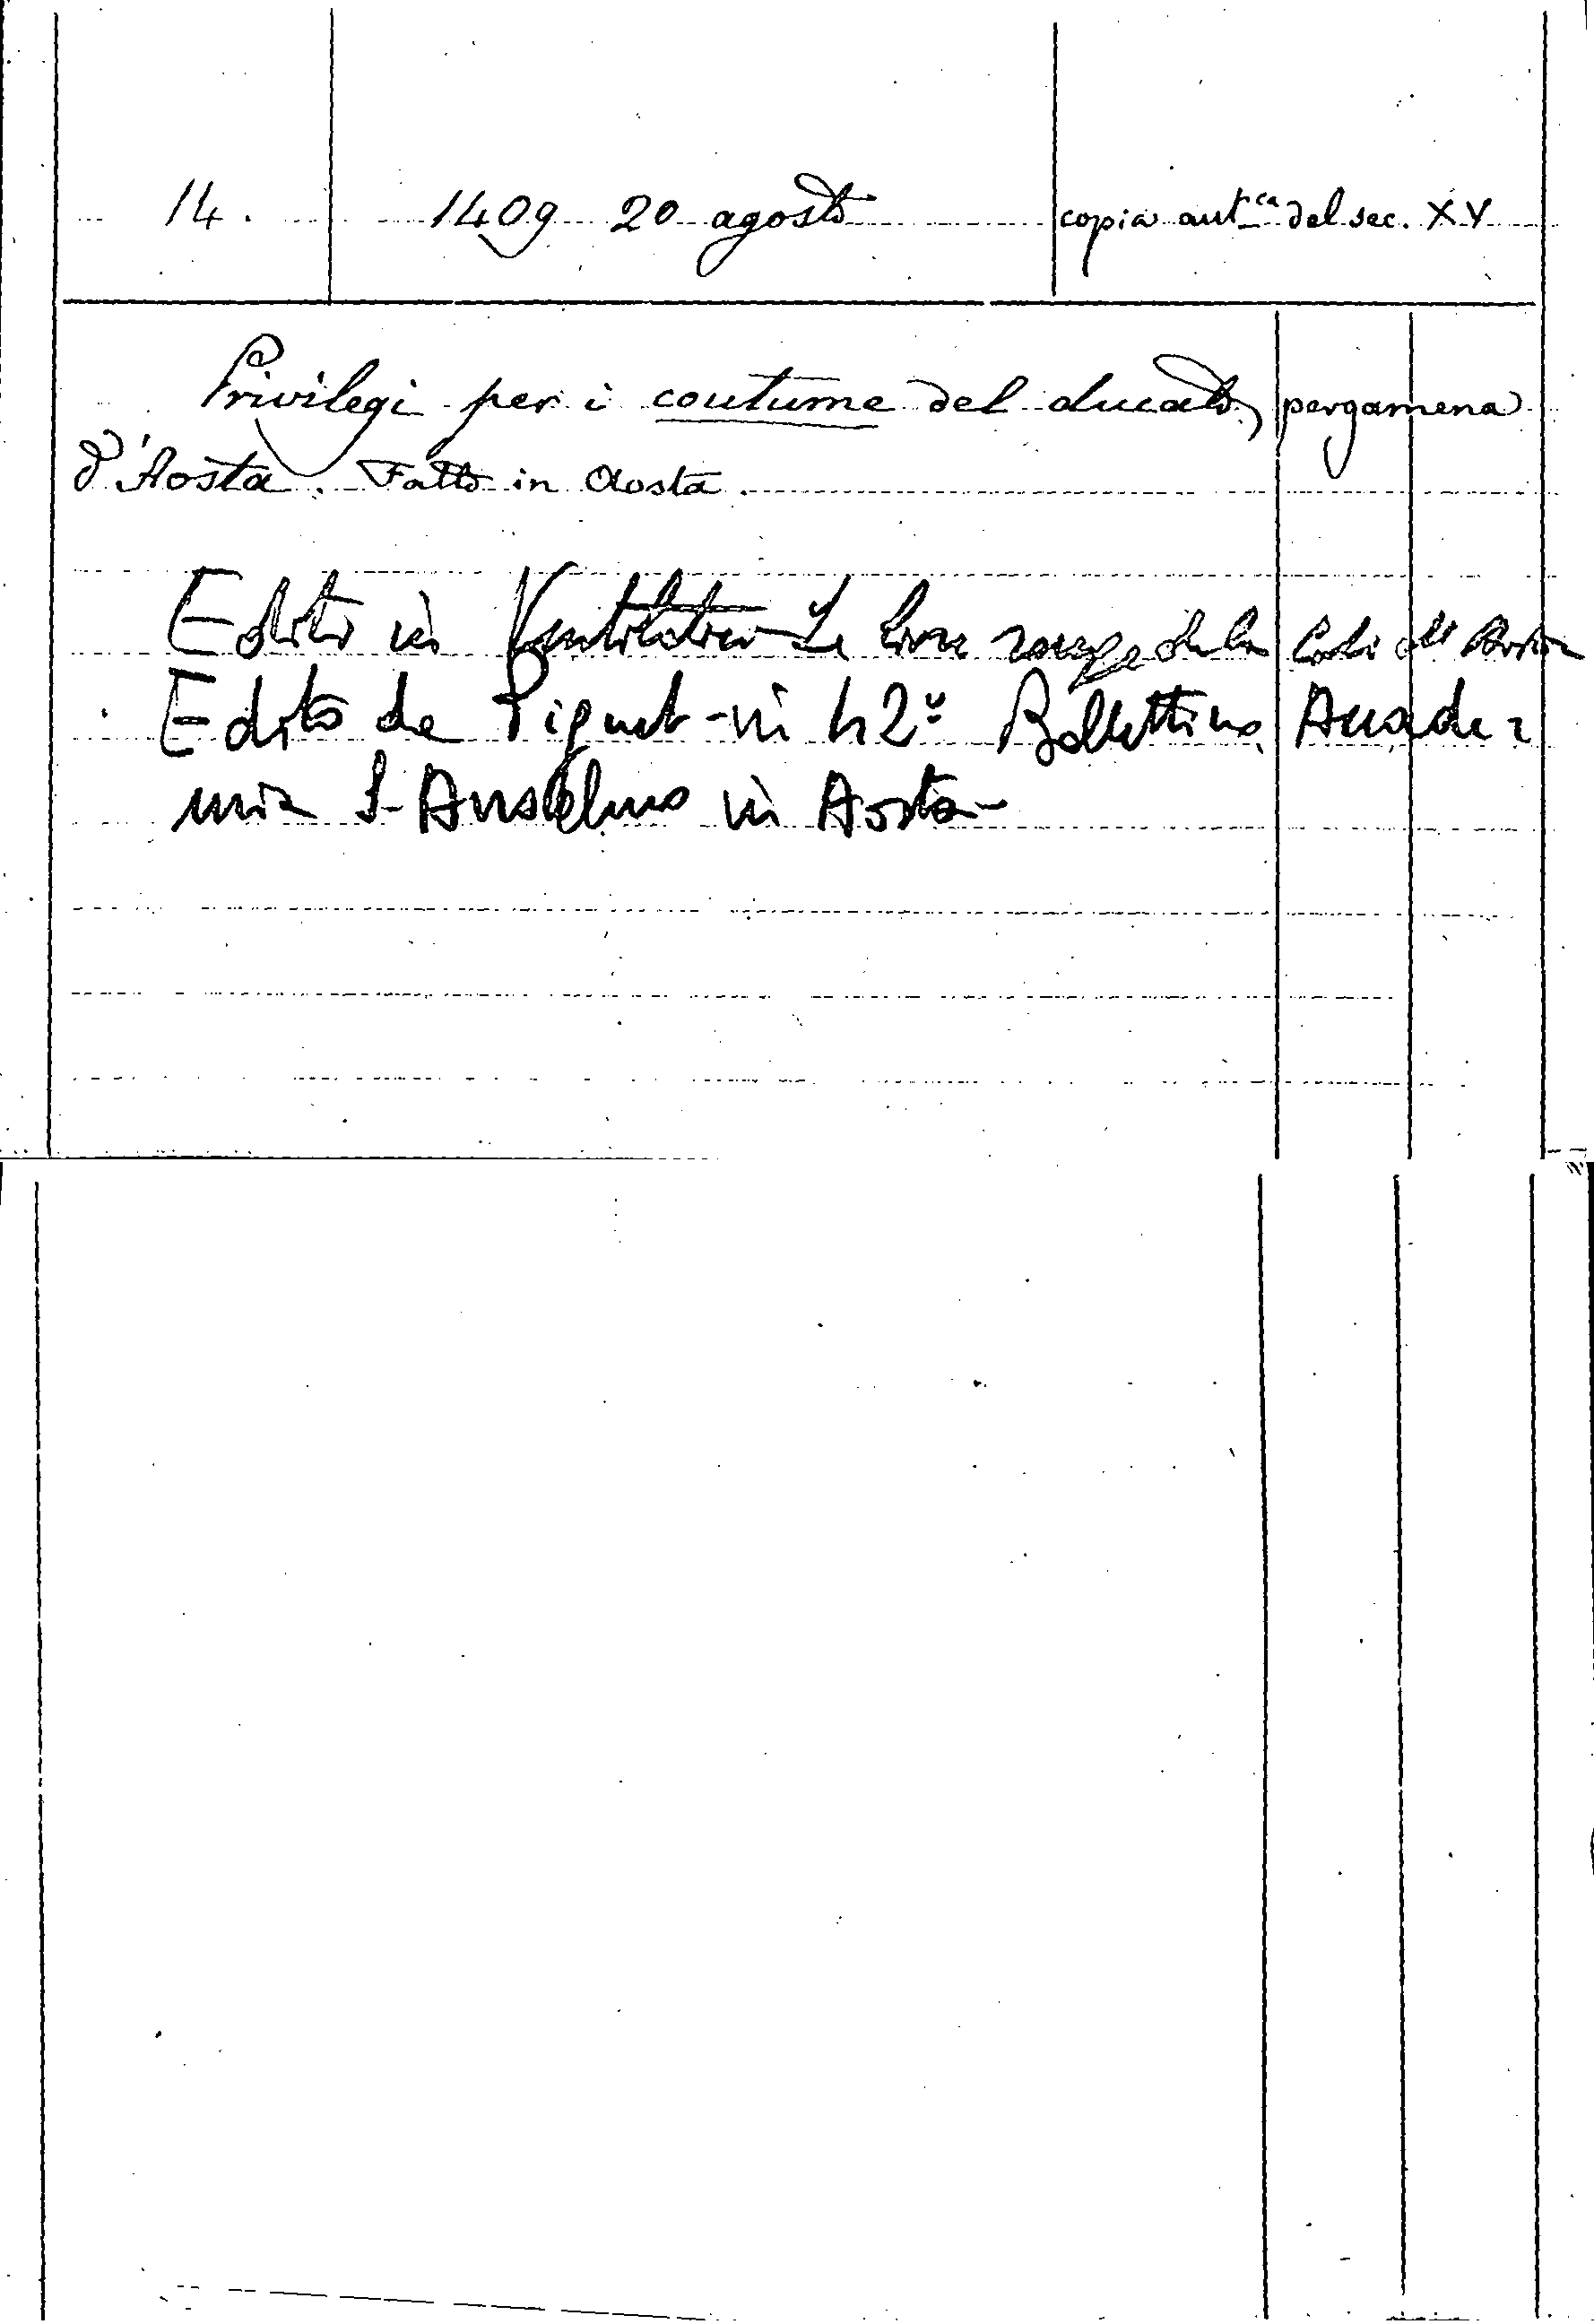 14. 1409 20 agosto copia aut.ca del sec. XV
Privilegi per i coutume del ducato pergamena
d'Aosta. Fatto in Aosta.
Edito in Le livre rouge de la Aosta
Edito da Pignet - in 42° Bollettino Accade=
mia S. Anselmo in Aosta -